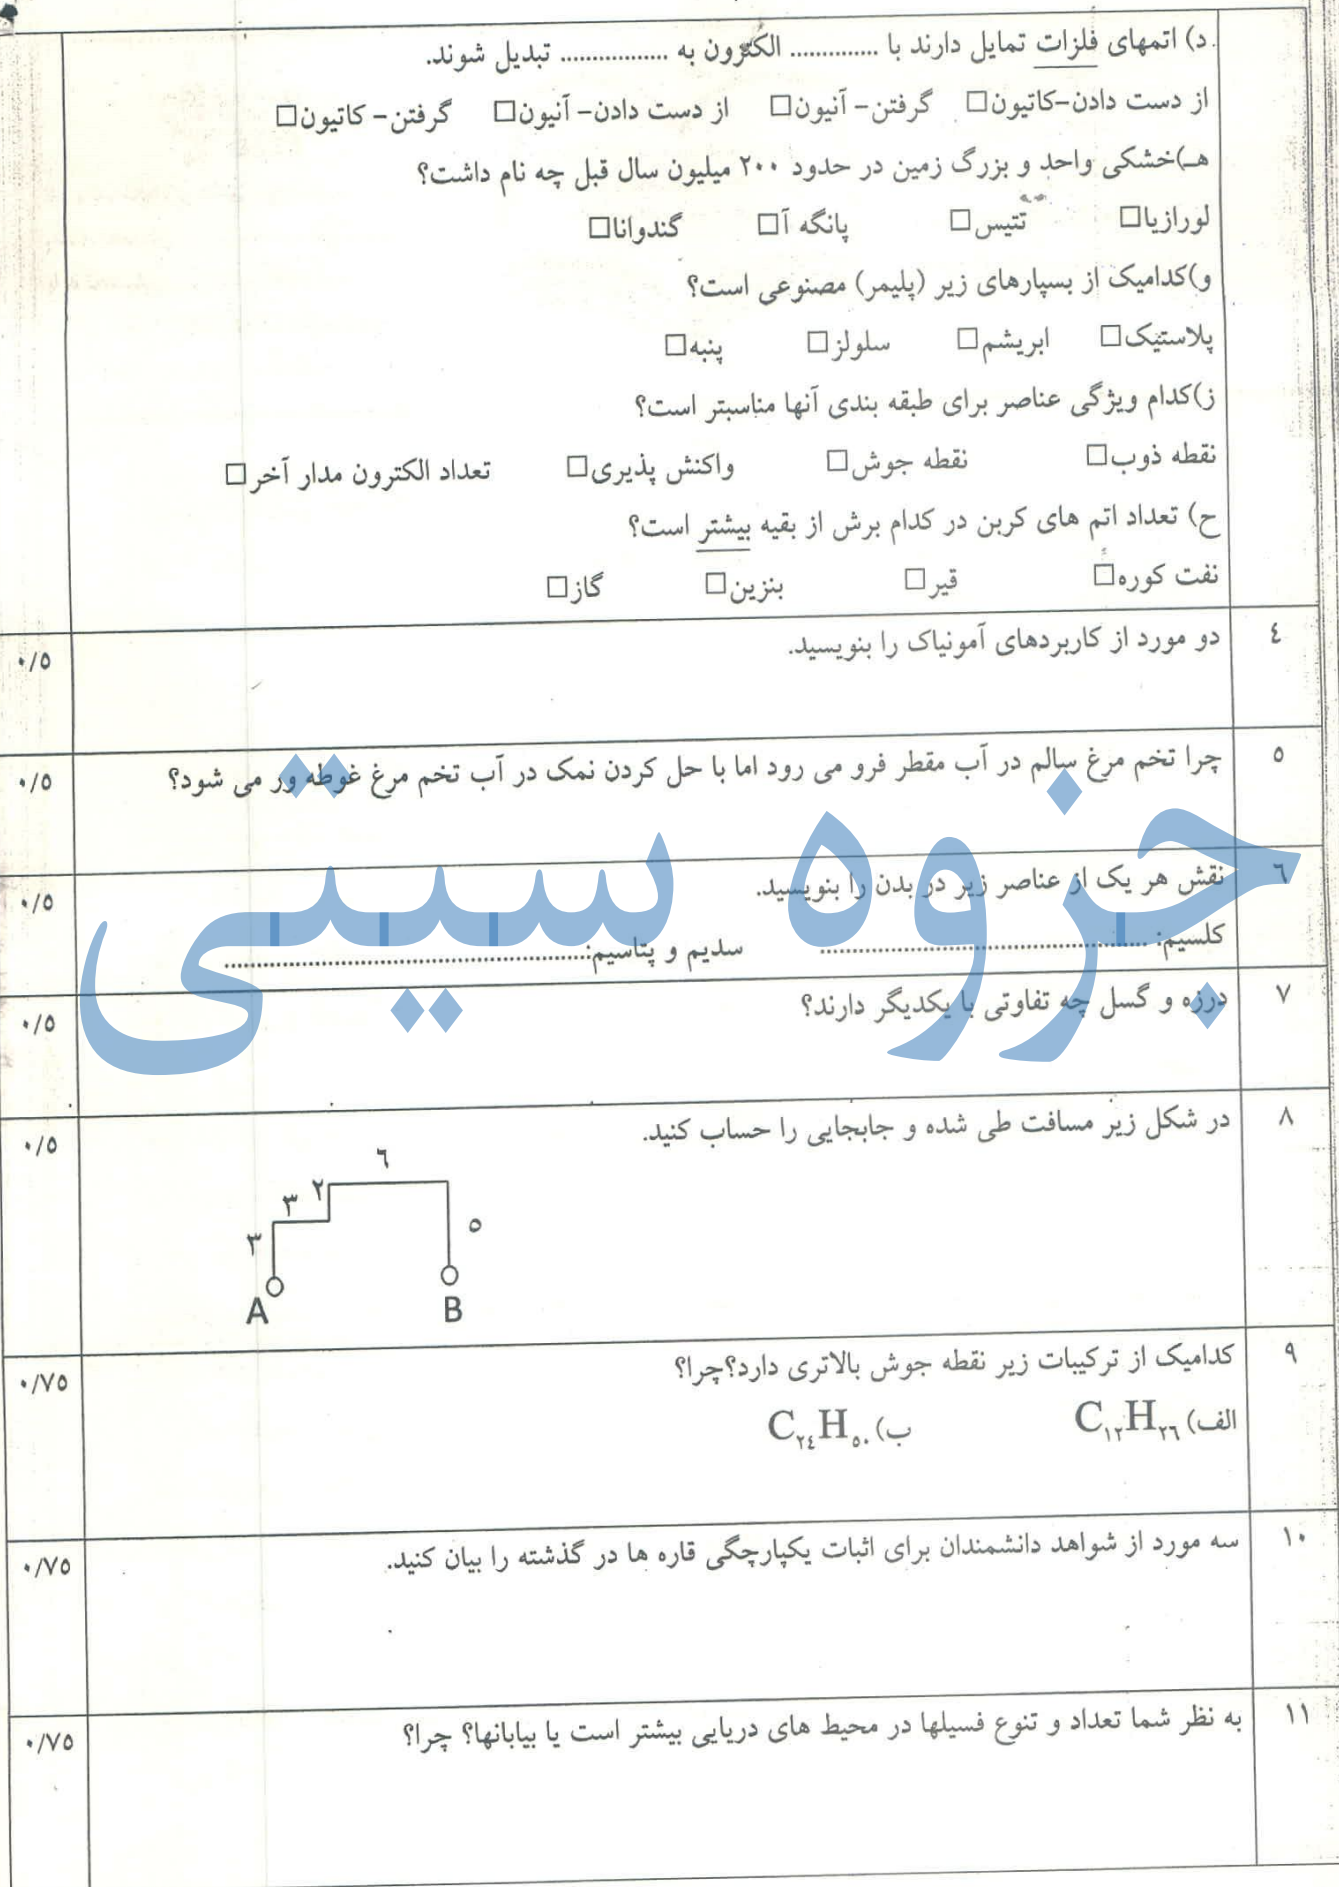 د) اتمهای فلزات تمایل دارند با .............. الکترون به ................. تبدیل شوند.
از دست دادن-کاتیون□ گرفتن- آنیون□ از دست دادن- آنیون□ گرفتن- کاتیون□
هـ)خشکی واحد و بزرگ زمین در حدود ۲۰۰ میلیون سال قبل چه نام داشت؟
لورازیا□ تتیس□ پانگه آ□ گندوانا□
و)کدامیک از بسپارهای زیر (پلیمر) مصنوعی است؟
پلاستیک□ ابریشم□ سلولز□ پنبه□
ز)کدام ویژگی عناصر برای طبقه بندی آنها مناسبتر است؟
نقطه ذوب□ نقطه جوش□ واکنش پذیری□ تعداد الکترون مدار آخر□
ح) تعداد اتم های کربن در کدام برش از بقیه بیشتر است؟
نفت کوره□ قیر□ بنزین□ گاز□
٤ دو مورد از کاربردهای آمونیاک را بنویسید. ۰/۵
۵ چرا تخم مرغ سالم در آب مقطر فرو می رود اما با حل کردن نمک در آب تخم مرغ غوطه ور می شود؟ ۰/۵
جزوه سیتی
٦ نقش هر یک از عناصر زیر در بدن را بنویسید. ۰/۵
کلسیم: .................................................... سدیم و پتاسیم:..........................................................
۷ درزه و گسل چه تفاوتی با یکدیگر دارند؟ ۰/۵
۸ در شکل زیر مسافت طی شده و جابجایی را حساب کنید. ۰/۵
٦
۳ ۲
۳ ۵
A B
۹ کدامیک از ترکیبات زیر نقطه جوش بالاتری دارد؟چرا؟ ۰/۷۵
الف) C₁₂H₂₆ ب) C₂₄H₅₀
۱۰ سه مورد از شواهد دانشمندان برای اثبات یکپارچگی قاره ها در گذشته را بیان کنید. ۰/۷۵
۱۱ به نظر شما تعداد و تنوع فسیلها در محیط های دریایی بیشتر است یا بیابانها؟ چرا؟ ۰/۷۵